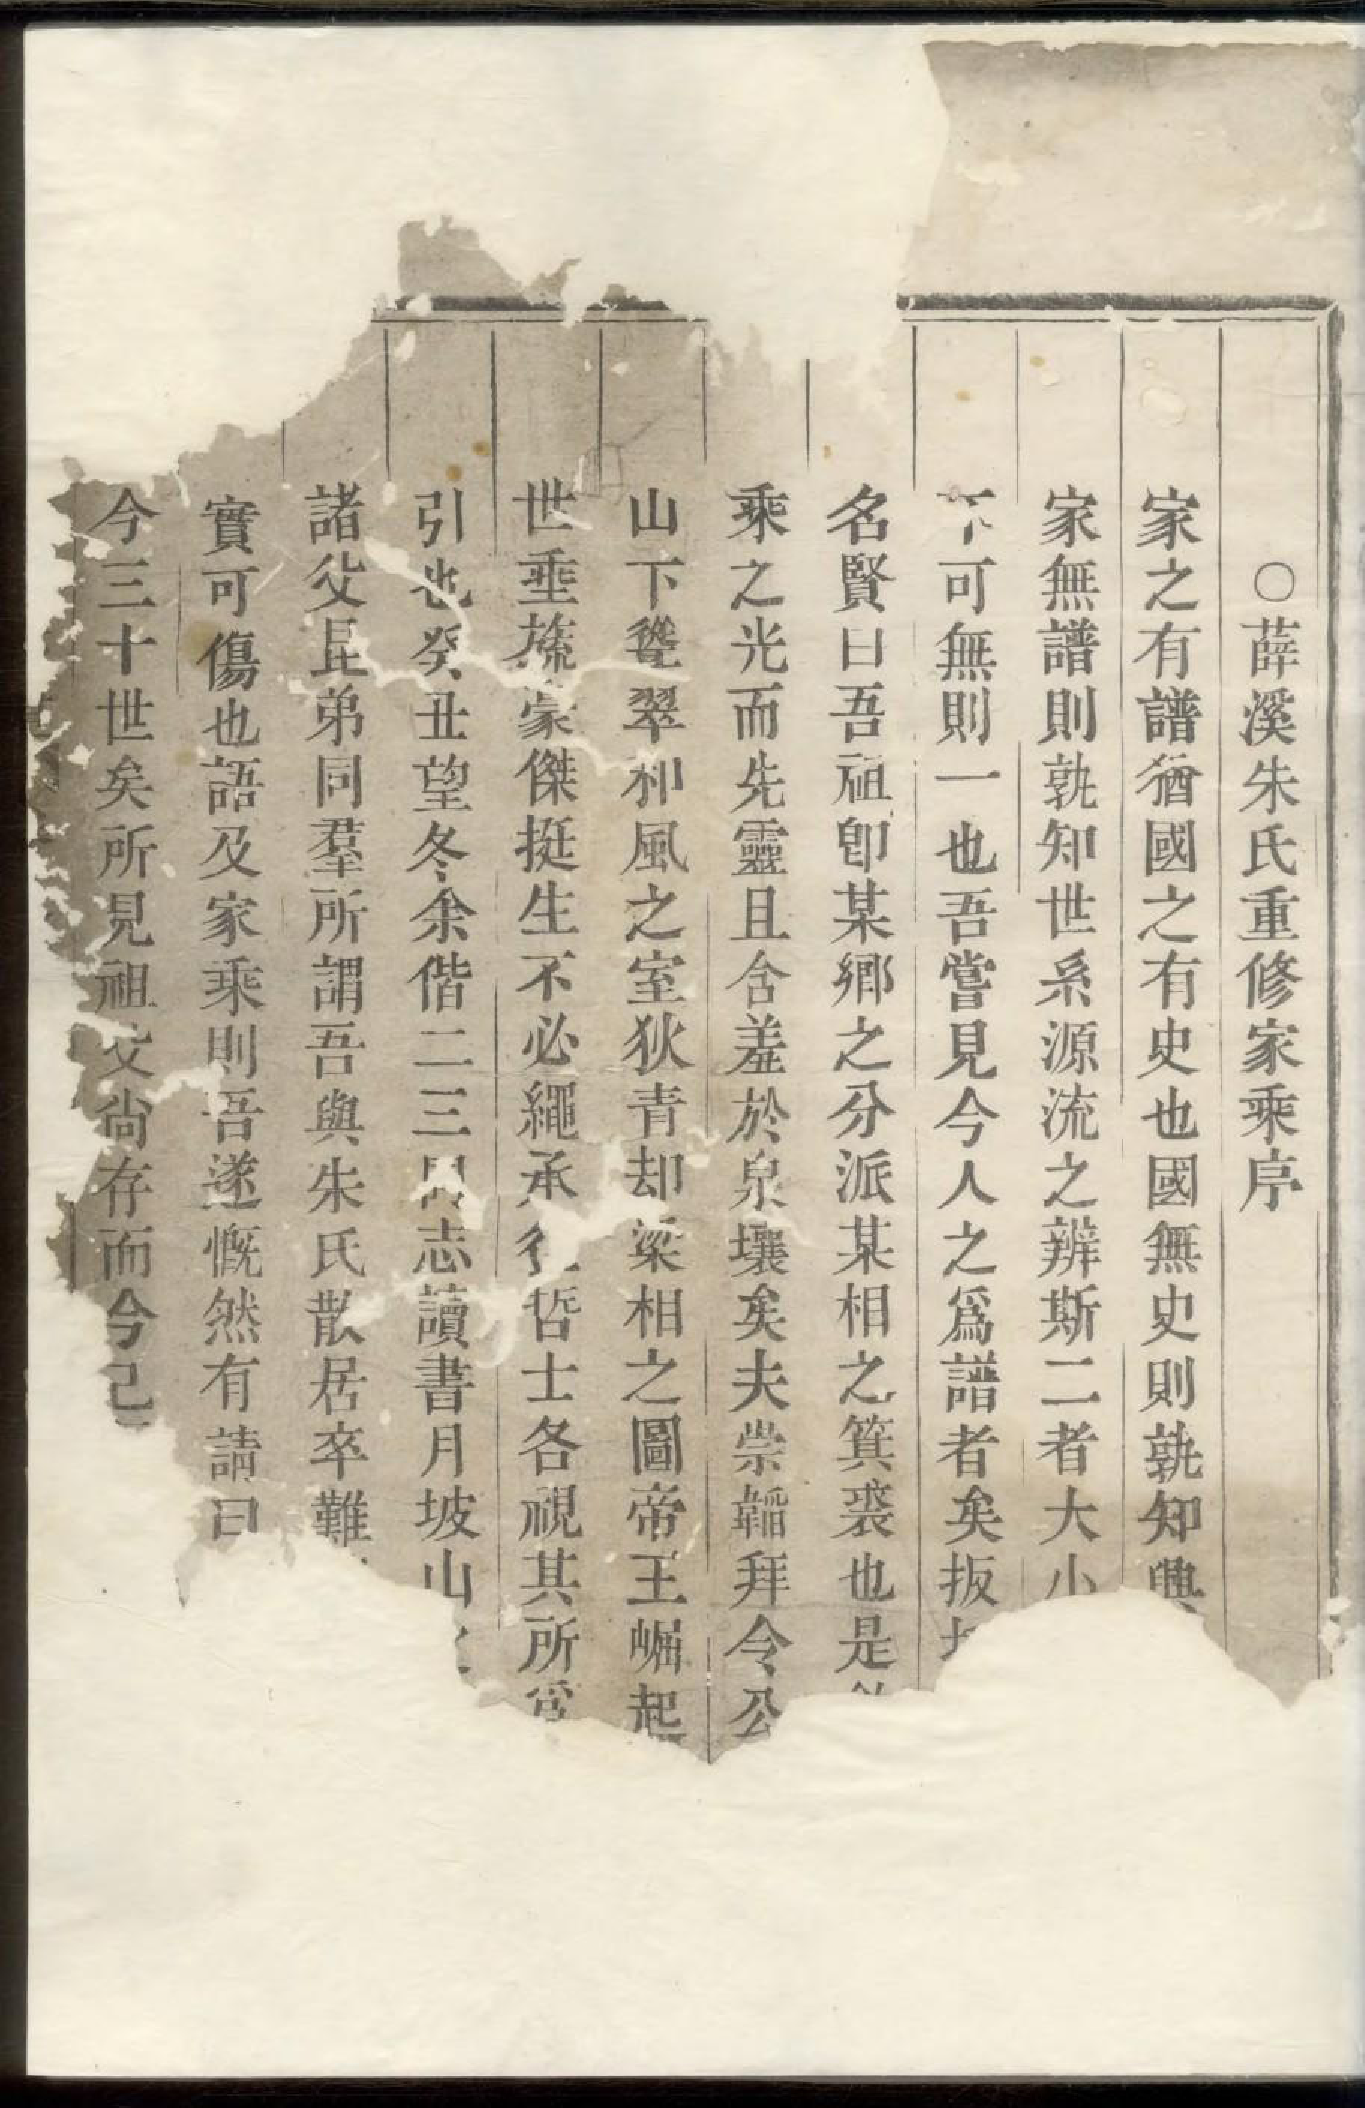 ○薛溪朱氏重修家乘序
家之有譜猶國之有史也國無史則孰知興
家無譜則孰知世系源流之辨斯二者大小
不可無則一也吾嘗見今人之爲譜者矣扳
名賢曰吾祖卽某鄉之分派某相之箕裘也是
乘之光而先靈且含羞於泉壤矣夫崇韜拜令公
山下聳翠和風之室狄青却梁相之圖帝王崛起
世垂旒豪傑挺生不必繩承往哲士各視其所爲
引也癸丑望冬余偕二三同志讀書月坡山
諸父昆弟同羣所謂吾與朱氏散居卒難
實可傷也語及家乘則吾遂慨然有請曰
今三十世矣所見祖父尙存而今已